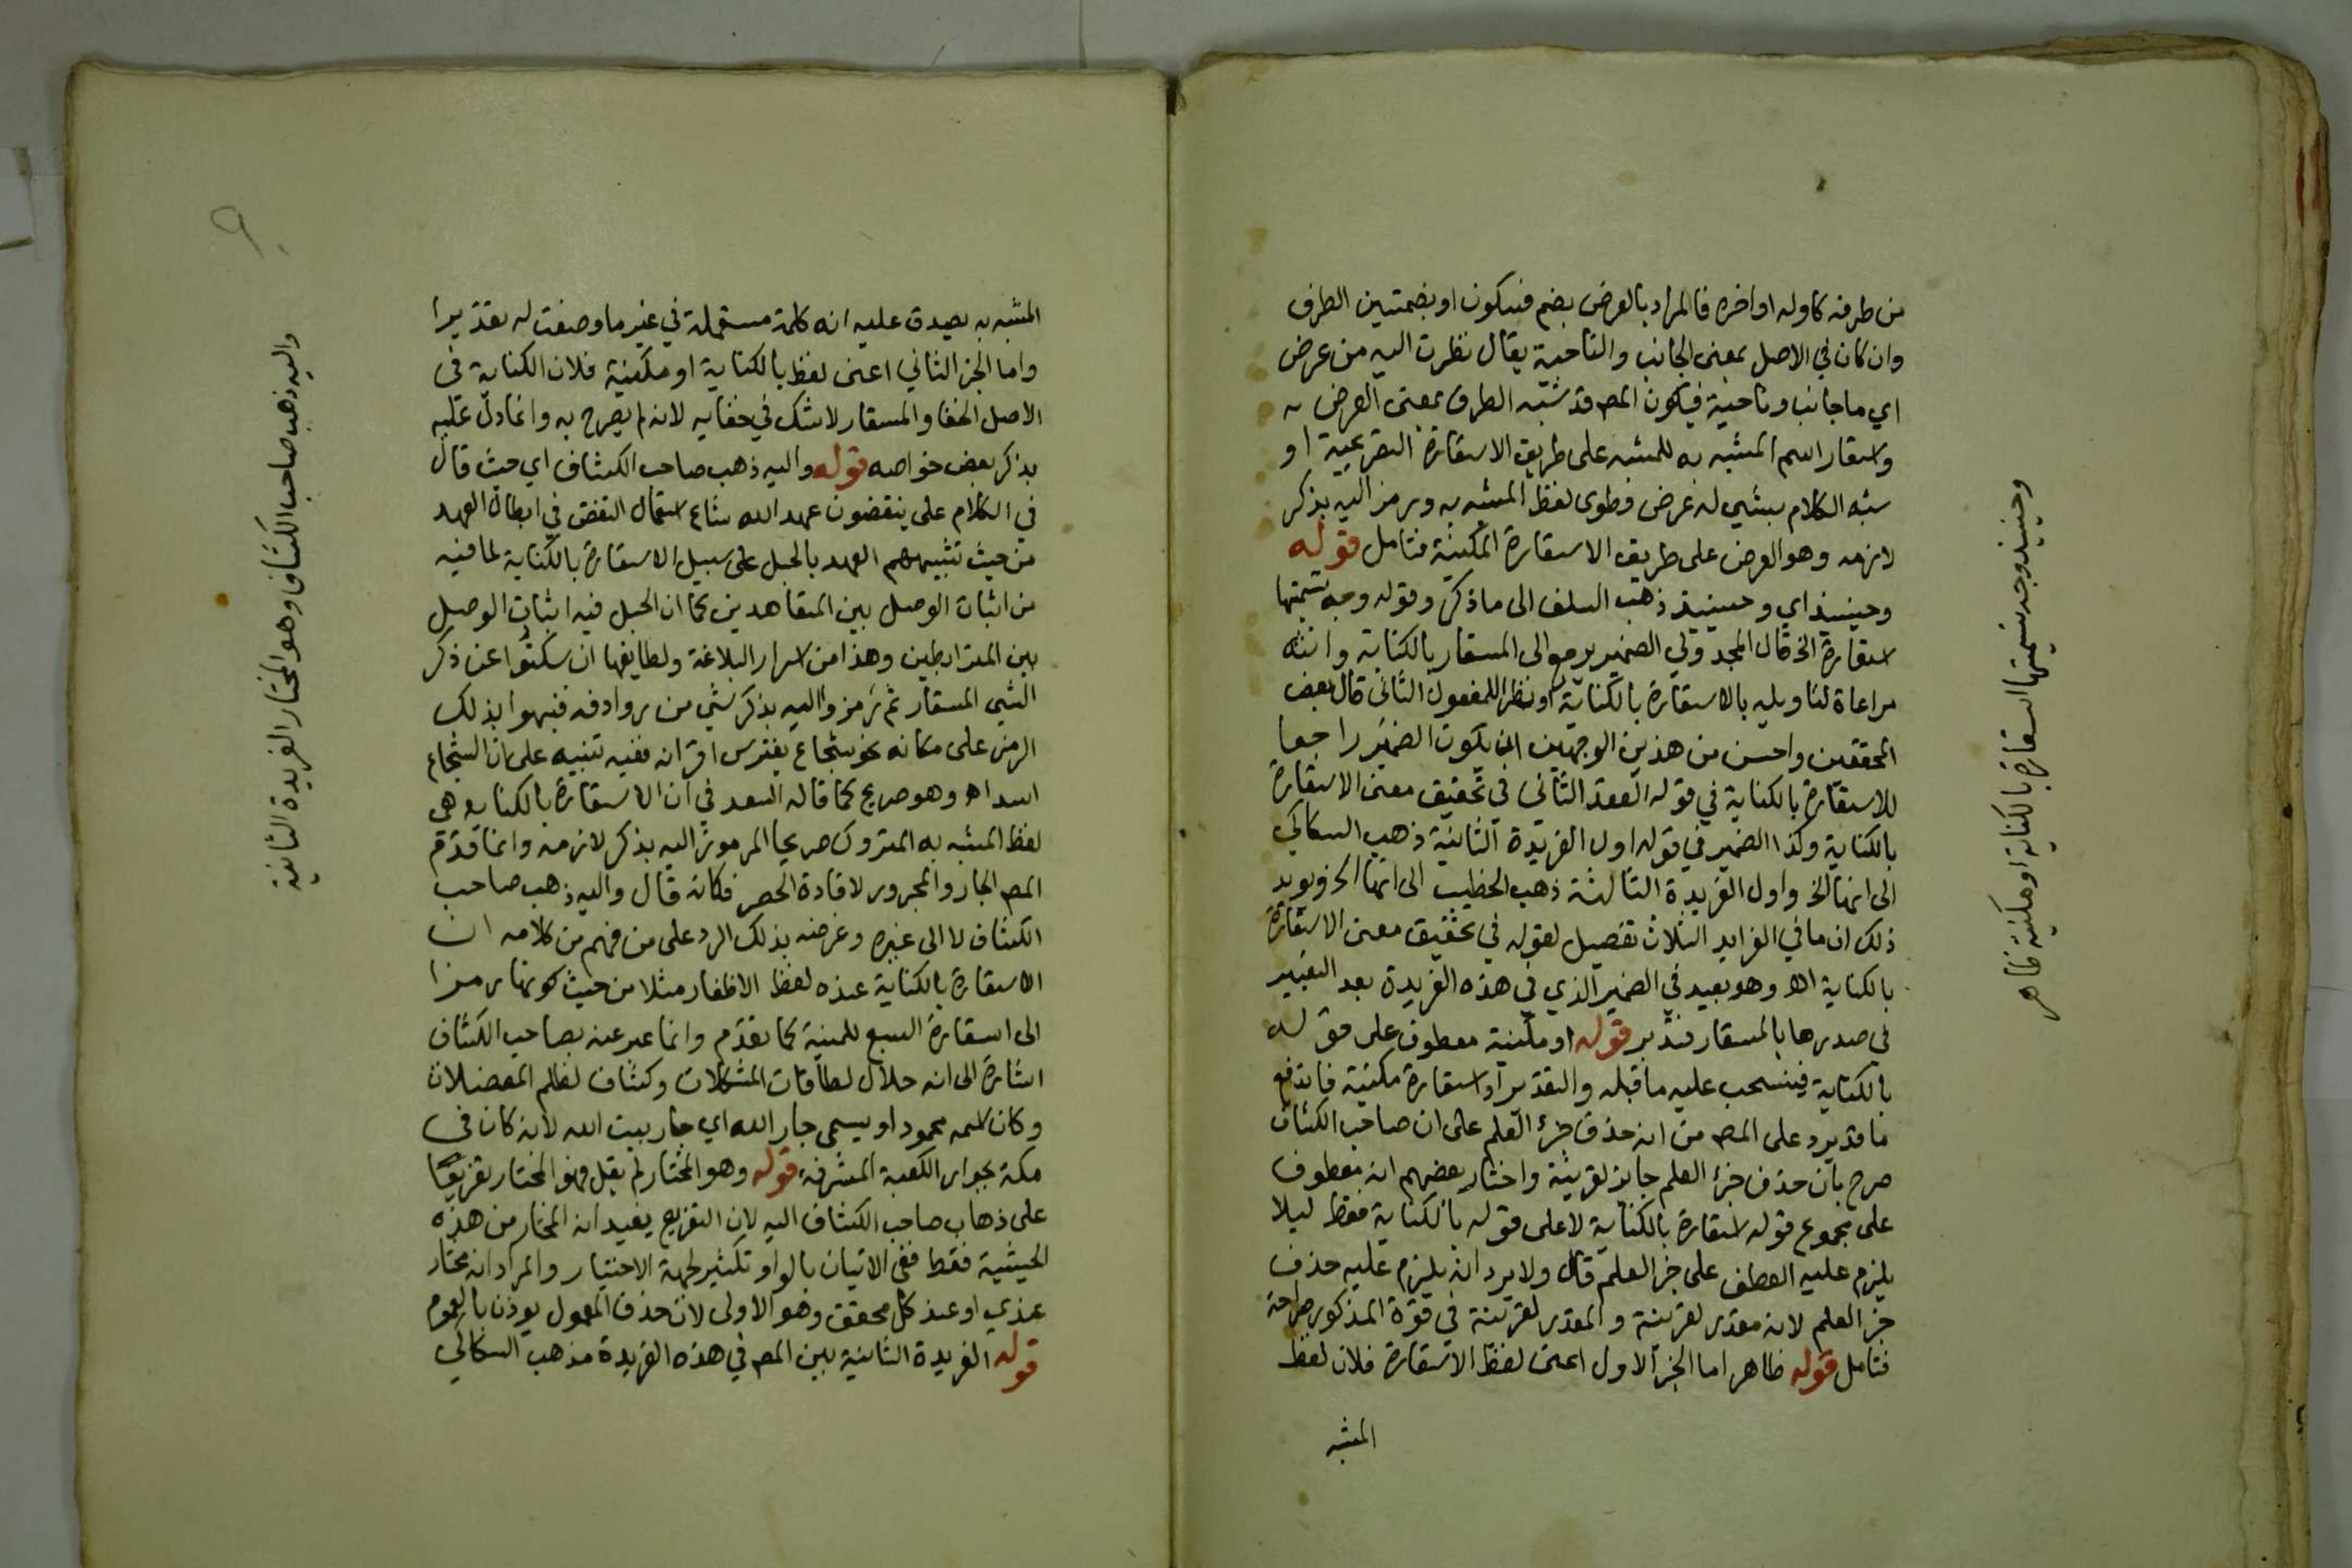 من طرفه كاوله او اخره فالمراد بالعرض بضم فسكون او بضمتين الطرف
وان كان في الاصل بمعنى الجانب والناحية يقال نظرت اليه من عرض
اي ما جانب وناحية فيكون المص قد شبه الطرف بمعنى العرض به
واستعار اسم المشبه به للمشبه على طريق الاستعارة التصريحية او
شبه الكلام بشيء له عرض وطوى لفظ المشبه به ورمز اليه بذكر
لازمه وهو العرض على طريق الاستعارة المكنية فتامل قوله
وحينئذ اي وحينئذ ذهب السلف الى ما ذكر وقوله وجه تسميتها
استعارة الخ قال المجدولي الضمير يرجع الى المستعار بالكناية وانثه
مراعاة لتاويله بالاستعارة بالكناية او نظرا للمفعول الثاني قال بعض
المحققين واحسن من هذين الوجهين ان يكون الضمير راجعا
للاستعارة بالكناية في قوله العقد الثاني في تحقيق معنى الاستعارة
بالكناية وكذا الضمير في قوله اول الفريدة الثانية ذهب السكاكي
الى انها الخ واول الفريدة الثالثة ذهب الخطيب الى انها الخ ويويد
ذلك ان ما في الفرايد الثلاث تفصيل لقوله في تحقيق معنى الاستعارة
بالكناية اه وهو بعيد في الضمير الذي في هذه الفريدة بعد التعبير
في صدرها بالمستعار فتدبر قوله او مكنية معطوف على قوله
بالكناية فينسحب عليه ما قبله والتقدير او استعارة مكنية فاندفع
ما قد يرد على المص من انه حذف جزء العلم على ان صاحب الكشاف
صرح بان حذف جزء العلم جايز لقرينة واختار بعضهم انه معطوف
على مجموع قوله استعارة بالكناية لا على قوله بالكناية فقط ليلا
يلزم عليه العطف على جز العلم قال ولا يرد انه يلزم عليه حذف
جز العلم لانه مقدر لقرينة والمقدر لقرينة في قوة المذكور صراحة
فتامل قوله ظاهر اما الجز الاول اعني لفظ الاستعارة فلان لفظ
المشبه
وحينئذ وجه تسميتها استعارة بالكناية او مكنية ظاهر
المشبه به يصدق عليه انه كلمة مستعملة في غير ما وضعت له تقديرا
واما الجز الثاني اعني لفظ بالكناية او مكنية فلان الكناية في
الاصل الخفا والمستعار لا شك في خفايه لانه لم يصرح به وانما دل عليه
بذكر بعض خواصه قوله واليه ذهب صاحب الكشاف اي حيث قال
في الكلام على ينقضون عهد الله شاع استعمال النقض في ابطال العهد
من حيث تشبيههم العهد بالحبل على سبيل الاستعارة بالكناية لما فيه
من اثبات الوصل بين المتعاهدين كما ان الحبل فيه اثبات الوصل
بين المترابطين وهذا من اسرار البلاغة ولطايفها ان سكتوا عن ذكر
الشي المستعار ثم رمزوا اليه بذكر شي من روادفه فنبهوا بذلك
الرمز على مكانه نحو شجاع يفترس اقرانه ففيه تنبيه على ان الشجاع
اسد اه وهو صريح كما قاله السعد في ان الاستعارة بالكناية هي
لفظ المشبه به المتروك صريحا المرموز اليه بذكر لازمه وانما قدم
المص الجار والمجرور لافادة الحصر فكانه قال واليه ذهب صاحب
الكشاف لا الى غيره وغرضه بذلك الرد على من فهم من كلامه ان
الاستعارة بالكناية عنده لفظ الاظفار مثلا من حيث كونها رمزا
الى استعارة السبع للمنية كما تقدم وانما عبر عنه بصاحب الكشاف
اشارة الى انه حلال لطاقات المشكلات وكشاف لظلم المعضلات
وكان اسمه محمود او يسمى جار الله اي جار بيت الله لانه كان في
مكة بجوار الكعبة المشرفة قوله وهو المختار لم يقل فهو المختار تفريعا
على ذهاب صاحب الكشاف اليه لان التفريع يفيد انه المختار من هذه
الحيثية فقط ففي الاتيان بالواو تكثير لجهة الاختيار والمراد انه مختار
عندي او عند كل محقق وهو الاولى لان حذف المعمول يوذن بالعموم
قوله الفريدة الثانية بين المص في هذه الفريدة مذهب السكاكي
واليه ذهب صاحب الكشاف وهو المختار الفريدة الثانية
٩